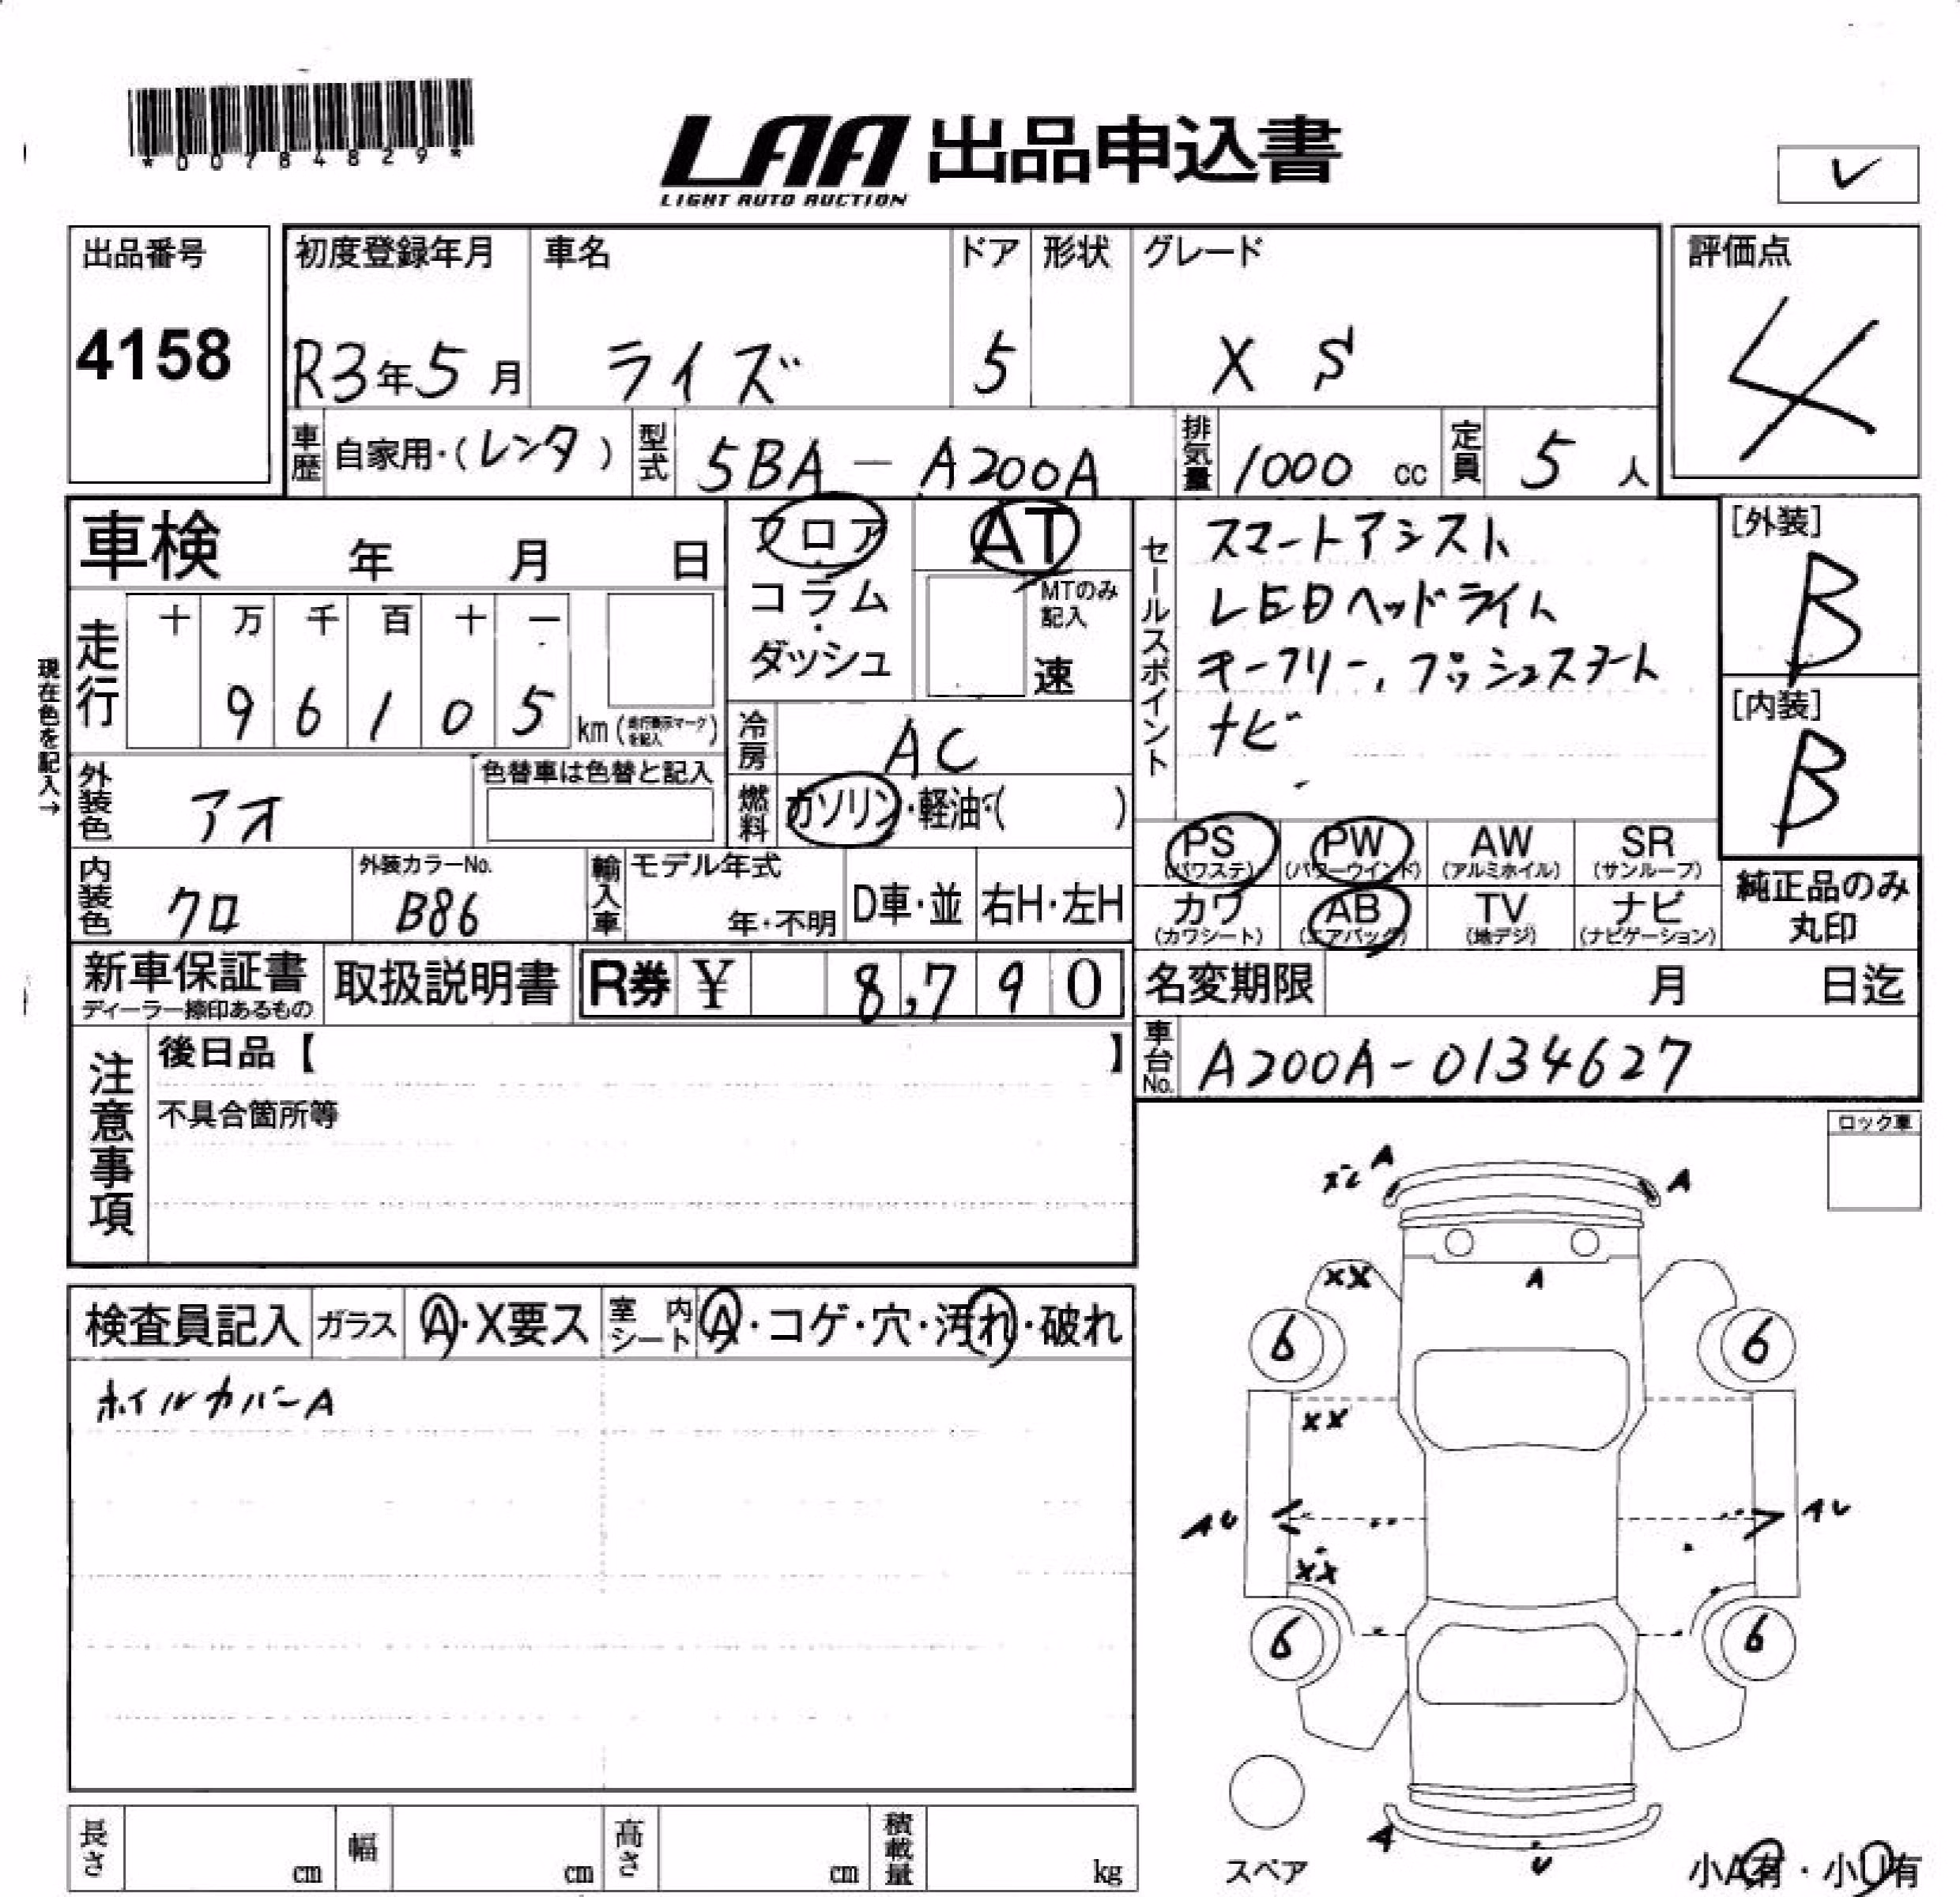 *00784829*
LAA 出品申込書
LIGHT AUTO AUCTION
出品番号
4158
初度登録年月 車名 ドア 形状 グレード
R3年5月 ライズ 5 X S
評価点
4
車歴 自家用・(レンタ) 型式 5BA-A200A 排気量 1000 cc 定員 5 人
車検 年 月 日
フロア・コラム・ダッシュ
AT
MTのみ記入
速
セールスポイント
スマートアシスト
LEDヘッドライト
キーフリー, プッシュスタート
ナビ
[外装]
B
[内装]
B
現在色を記入→
走行 十 万 千 百 十 一
9 6 1 0 5 km
冷房 AC
外装色 アオ
色替車は色替と記入
燃料 ガソリン・軽油・( )
PS (パワステ) PW (パワーウインド) AW (アルミホイル) SR (サンルーフ)
カワ (カワシート) AB (エアバッグ) TV (地デジ) ナビ (ナビゲーション)
純正品のみ
丸印
内装色 クロ 外装カラーNo. B86
輸入車 モデル年式 年・不明 D車・並 右H・左H
新車保証書 取扱説明書 R券 ¥ 8,790
ディーラー捺印あるもの
名変期限 月 日迄
車台No. A200A-0134627
注意事項
後日品【 】
不具合箇所等
ロック車
検査員記入 ガラス A・X要ス 室内シート A・コゲ・穴・汚れ・破れ
ホイルカバーA
A
A
XX
A
6
6
XX
AU
AU
XX
6
6
A
U
スペア
小A有・小U有
長さ cm 幅 cm 高さ cm 積載量 kg